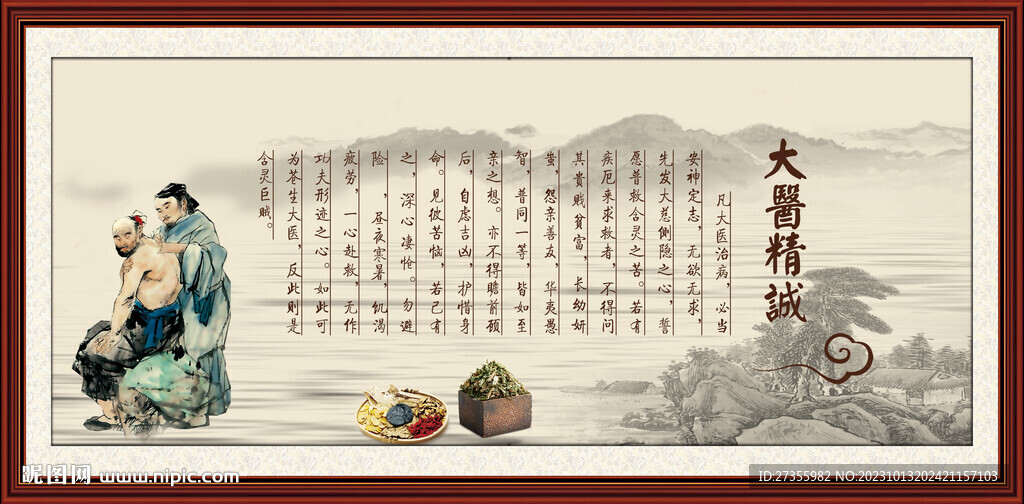 大醫精誠
凡大医治病，必当
安神定志，无欲无求，
先发大慈恻隐之心，誓
愿普救含灵之苦。若有
疾厄来求救者，不得问
其贵贱贫富，长幼妍
蚩，怨亲善友，华夷愚
智，普同一等，皆如至
亲之想。亦不得瞻前顾
后，自虑吉凶，护惜身
命。见彼苦恼，若己有
之，深心凄怆。勿避
险，昼夜寒暑，饥渴
疲劳，一心赴救，无作
功夫形迹之心。如此可
为苍生大医，反此则是
含灵巨贼。
昵图网 www.nipic.com
ID:27355982 NO:20231013202421157103